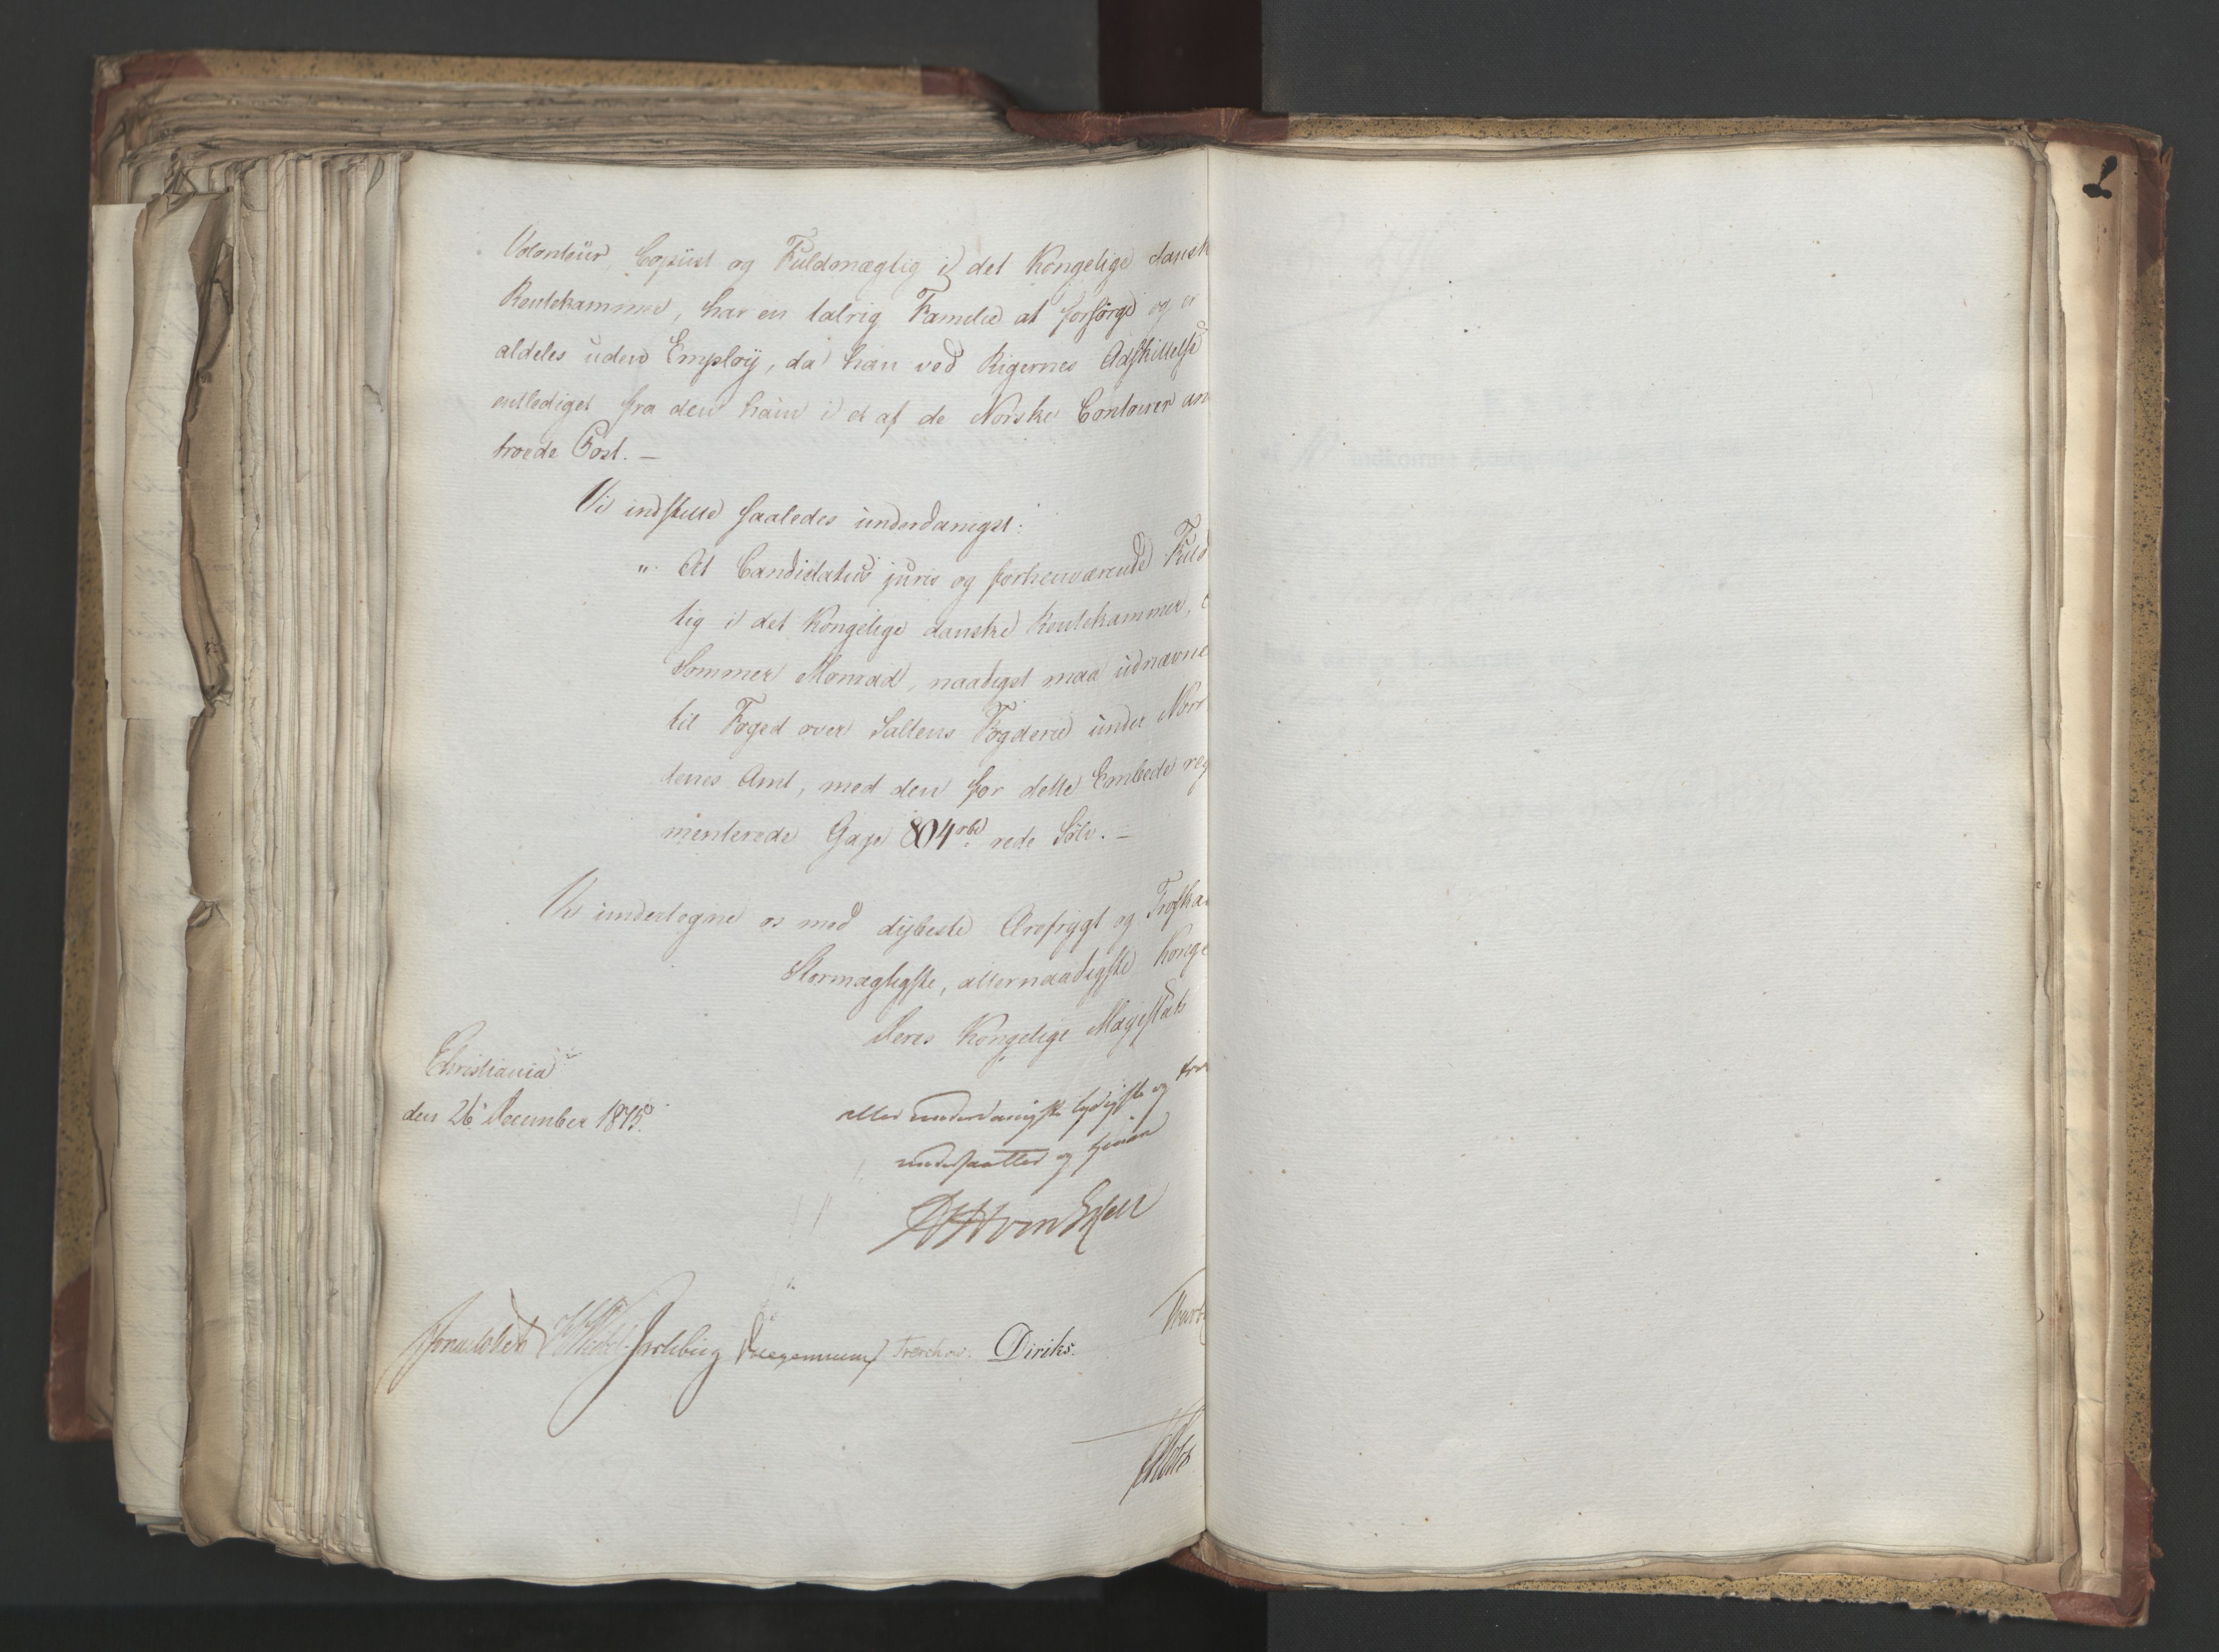 Volonteür, Copiist og Fuldmægtig i det Kongelige dansk
Rentekammer, har en talrig Familie at forsørge og er
aldeles uden Employ, da han ved Rigernes Adskillelse
entlediget fra den ham i et af de Norske Contoirer an
troede Post. –
Vi indstille saaledes underdanigst:
" At Candidatus juris og forhenværende Fuld
tig i det Kongelige danske Rentekammer,
Sommer Monrad, naadigst maa udnævne
til Foged over Saltens Fogderie under Norr
denes Amt, med den for dette Embede reg
menterede Gage 804 rbd rede Sølv. –
Vi undertegne os med dybeste Ærefrygt og Troskab
Stormægtigste, allernaadigste Konge
Deres Kongelige Majestæts
Christiania
den 26 December 1815.
allerunderdanigste lydigste og tro
undersaatter og tjenere
Sommerfeldt Krohg Diriks.